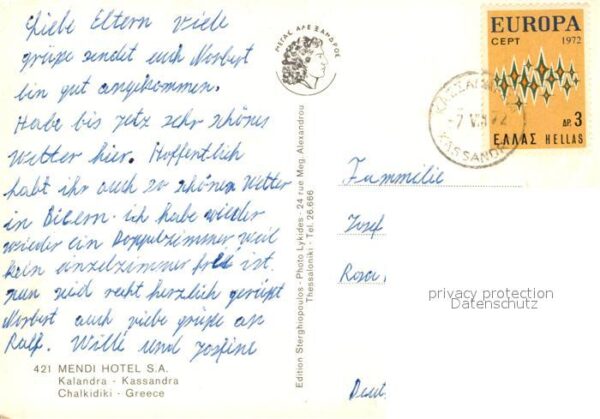 Liebe Eltern viele
grüße sendet euch Norbert
bin gut angekommen.
Habe bis jetz sehr schönes
Wetter hier. Hoffentlich
habt ihr auch so schönen Wetter
in ich habe wieder
wieder ein Doppelzimmer weil
kein einzelzimmer frei ist.
nun seid recht herzlich gerüßt
Norbert auch viele grüße an
Ralf. Willi und Josfine
421 MENDI HOTEL S.A.
Kalandra - Kassandra
Chalkidiki - Greece
ΜΕΓΑΣ ΑΛΕΞΑΝΔΡΟΣ
Edition Sterghiopoulos - Photo Lykides - 24 rue Meg. Alexandrou
Thessaloniki - Tel. 26.666
EUROPA
CEPT 1972
ΔΡ. 3
ΕΛΛΑΣ HELLAS
KASSANDRA
Fammilie
Josef
Rosa
privacy protection
Datenschutz
Deut